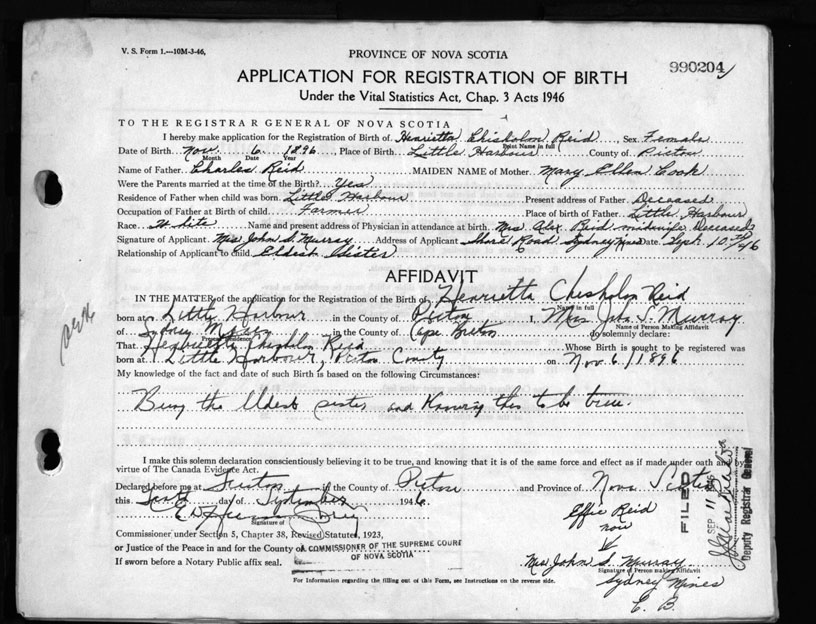 V. S. Form 1.—10M-3-46,
PROVINCE OF NOVA SCOTIA
990204
APPLICATION FOR REGISTRATION OF BIRTH
Under the Vital Statistics Act, Chap. 3 Acts 1946
TO THE REGISTRAR GENERAL OF NOVA SCOTIA
I hereby make application for the Registration of Birth of Henrietta Chisholm Reid, Sex Female
Print Name in full
Date of Birth Nov. 6 1896, Place of Birth Little Harbour County of Pictou
Month Date Year
Name of Father Charles Reid MAIDEN NAME of Mother Mary Ellen Cook
Were the Parents married at the time of the Birth? Yes
Residence of Father when child was born Little Harbour Present address of Father Deceased
Occupation of Father at Birth of child Farmer Place of birth of Father Little Harbour
Race White Name and present address of Physician in attendance at birth Mrs Alex Reid midwife Deceased
Signature of Applicant Mrs John S. Murray Address of Applicant Shore Road Sydney Mines Date Sept. 10th/46
Relationship of Applicant to child Eldest Sister
AFFIDAVIT
IN THE MATTER of the application for the Registration of the Birth of Henrietta Chisholm Reid
Name in full
born at Little Harbour in the County of Pictou I, Mrs John S. Murray
Name of Person Making Affidavit
of Sydney Mines in the County of Cape Breton do solemnly declare:
Present Residence
That Henrietta Chisholm Reid Whose Birth is sought to be registered was
born at Little Harbour, Pictou County on Nov. 6/1896
My knowledge of the fact and date of such Birth is based on the following Circumstances:
Being the Eldest sister and Knowing this to be true.
I make this solemn declaration conscientiously believing it to be true, and knowing that it is of the same force and effect as if made under oath and by
virtue of The Canada Evidence Act.
Declared before me at in the County of Pictou and Province of Nova Scotia
this day of September 1946
Signature of
Effie Reid
now
Commissioner under Section 5, Chapter 38, Revised Statutes, 1923,
or Justice of the Peace in and for the County of
A COMMISSIONER OF THE SUPREME COURT
OF NOVA SCOTIA
If sworn before a Notary Public affix seal.
Mrs. John S. Murray
Signature of Person making Affidavit
Sydney Mines
C. B.
For Information regarding the filling out of this Form, see Instructions on the reverse side.
FILED
SEP 11 1946
Deputy Registrar General